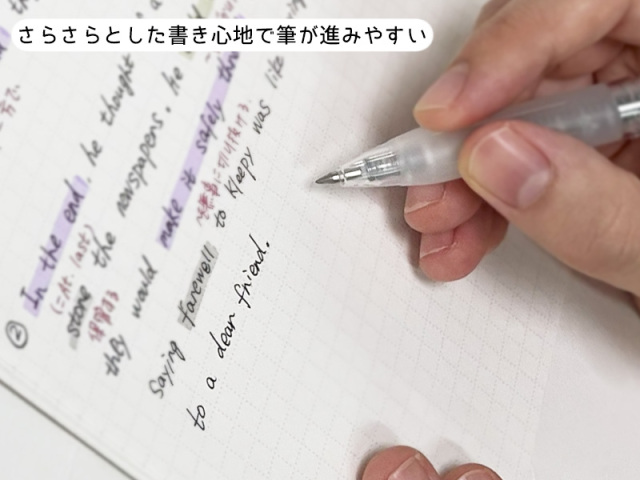 さらさらとした書き心地で筆が進みやすい
② In the end, he thought
(=At last)
store the newspapers. he
保管する
they would make it safely thr
saying farewell to Kleepy was like
to a dear friend.